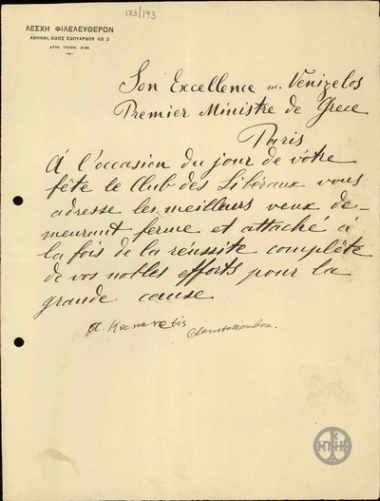 173/193
ΛΕΣΧΗ ΦΙΛΕΛΕΥΘΕΡΩΝ
ΑΘΗΝΑΙ, ΟΔΟΣ ΕΔΟΥΑΡΔΟΥ
Son Excellence m. Vénizelos
Premier Ministre de Grece
Paris
À l'occasion du jour de votre
fête le Club des Libéraux vous
adresse les meilleurs veux de-
meurant ferme et attaché à
la fois de la réussite complête
de vos nobles efforts pour la
grande cause